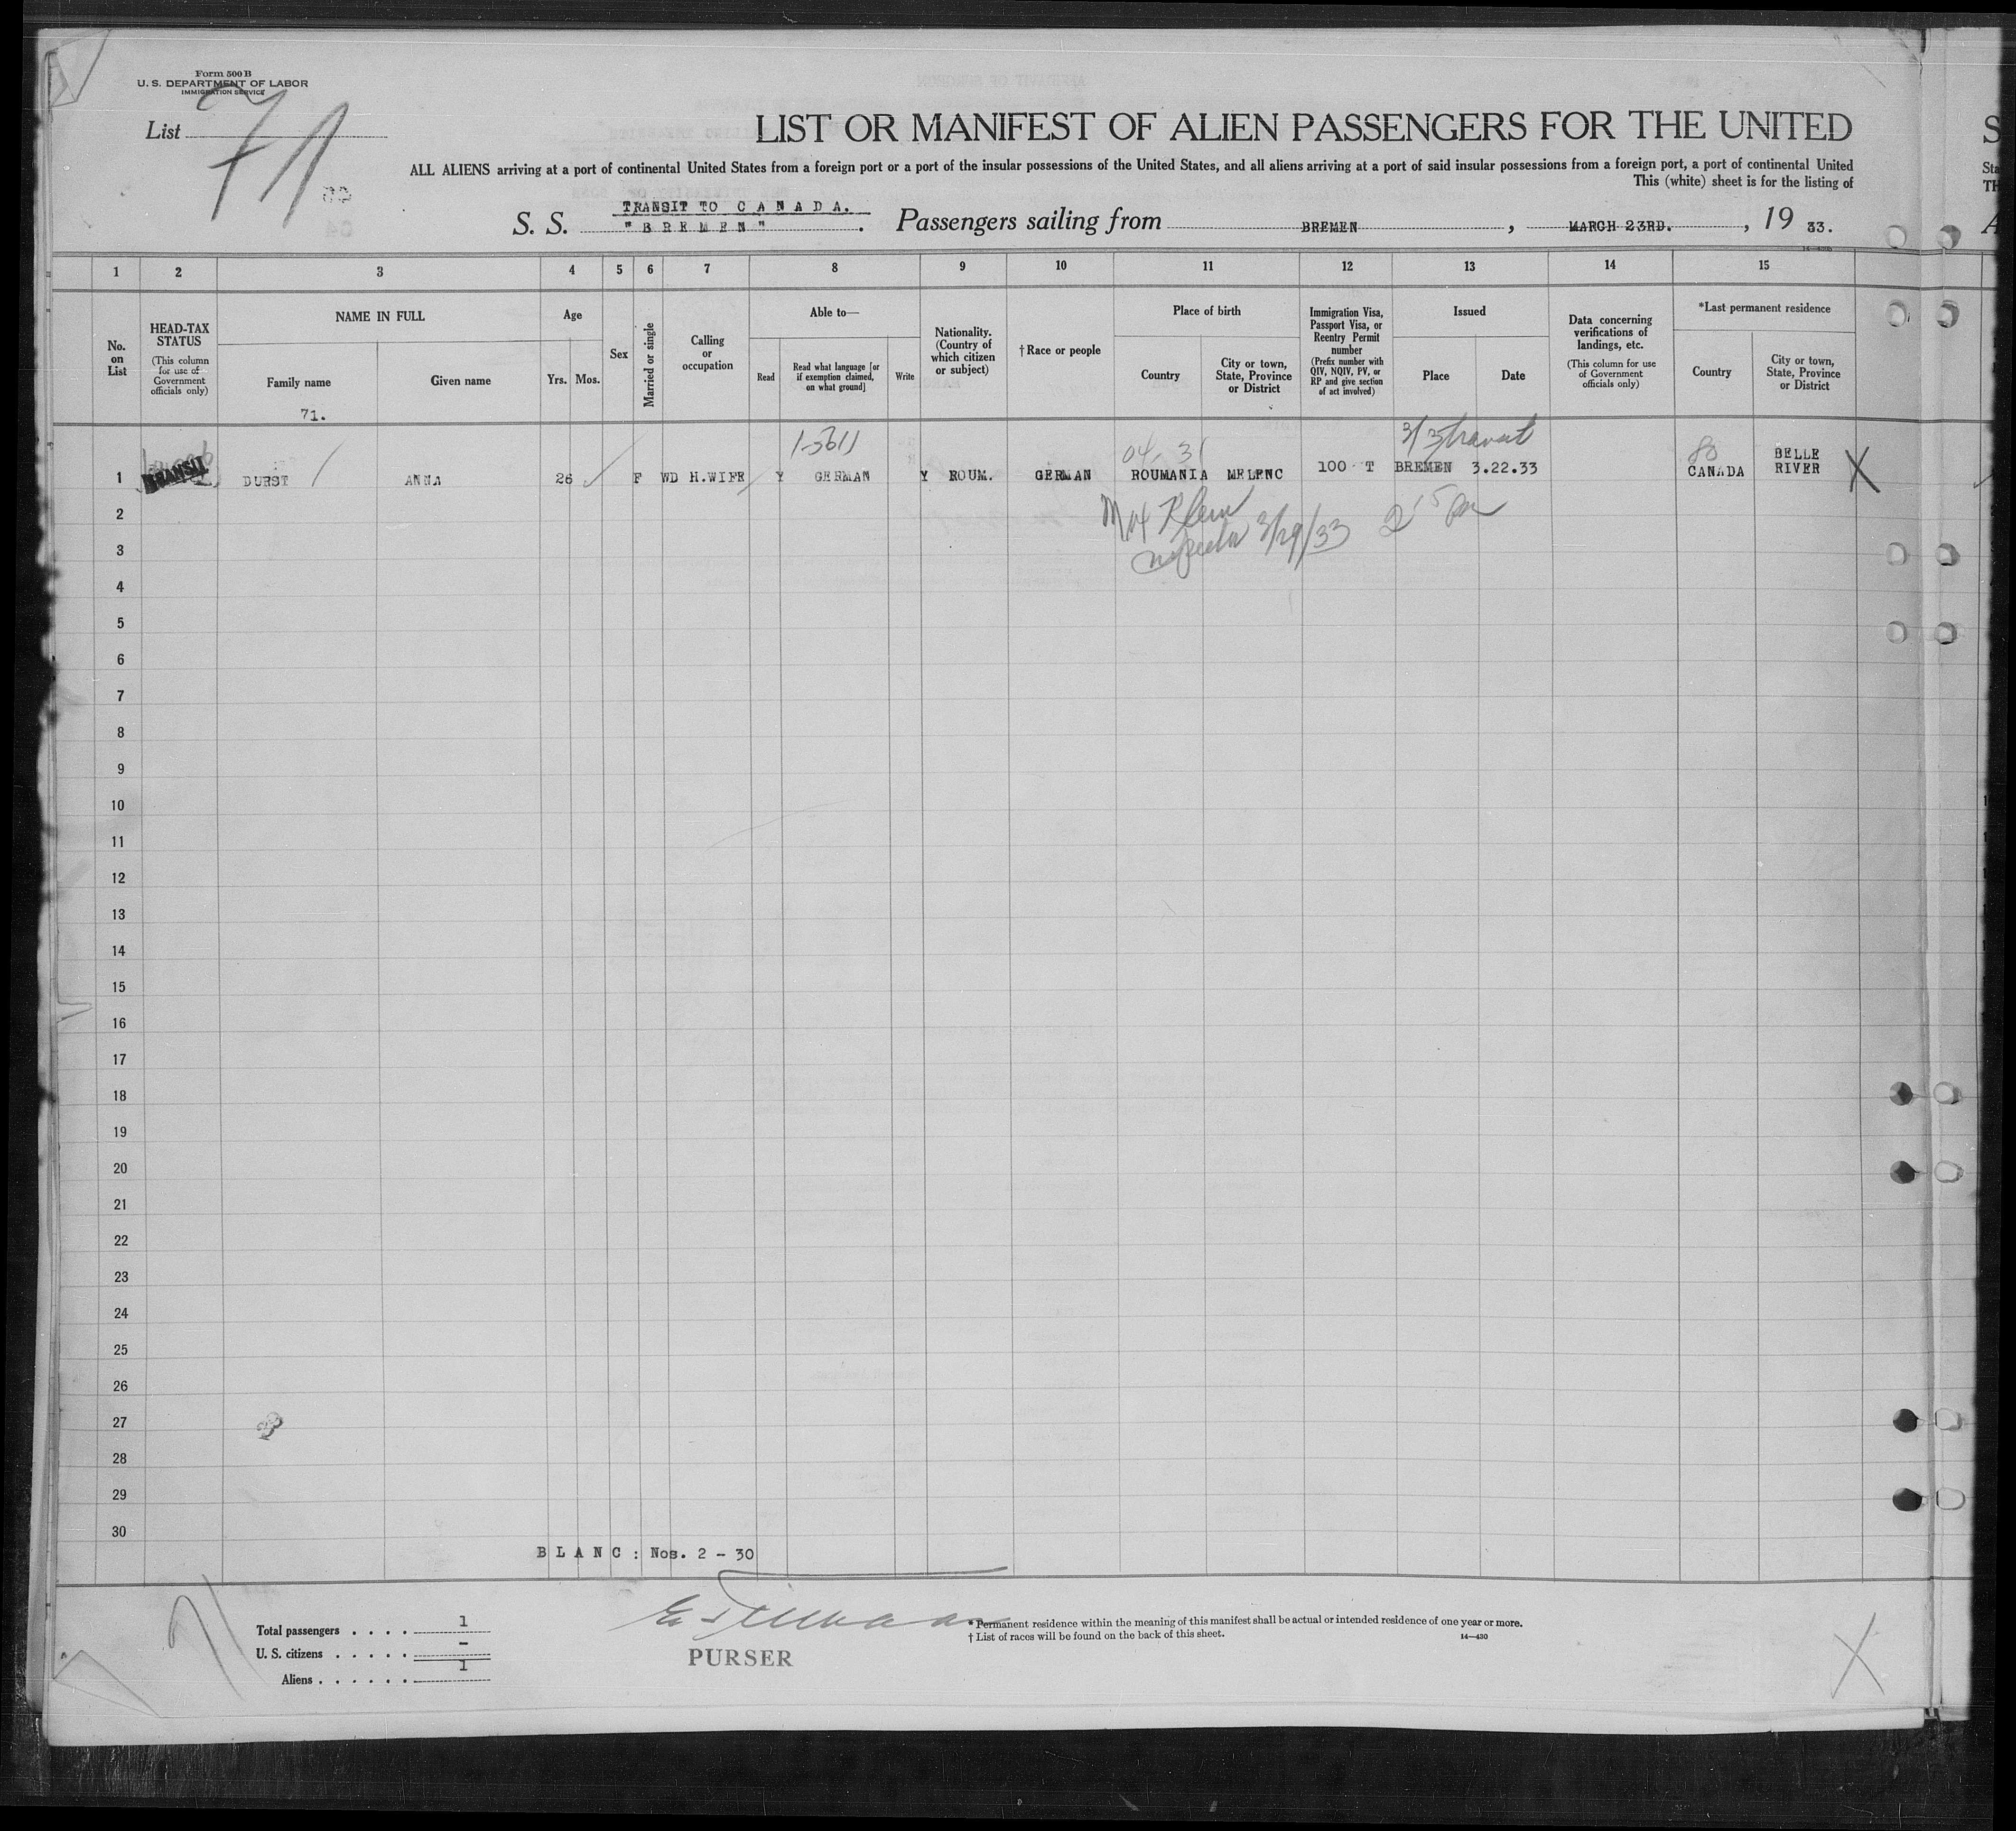 Form 500 B
U. S. DEPARTMENT OF LABOR
IMMIGRATION SERVICE
List 71
LIST OR MANIFEST OF ALIEN PASSENGERS FOR THE UNITED
ALL ALIENS arriving at a port of continental United States from a foreign port or a port of the insular possessions of the United States, and all aliens arriving at a port of said insular possessions from a foreign port, a port of continental United
This (white) sheet is for the listing of
TRANSIT TO CANADA.
S. S. "BREMEN". Passengers sailing from BREMEN, MARCH 23RD., 19 33.
1 2 3 4 5 6 7 8 9 10 11 12 13 14 15
No. on List
HEAD-TAX STATUS
(This column for use of Government officials only)
NAME IN FULL
Family name
Given name
71.
Age
Yrs. Mos.
Sex
Married or single
Calling or occupation
Able to—
Read
Read what language [or if exemption claimed, on what ground]
Write
Nationality. (Country of which citizen or subject)
†Race or people
Place of birth
Country
City or town, State, Province or District
Immigration Visa, Passport Visa, or Reentry Permit number
(Prefix number with QIV, NQIV, PV, or RP and give section of act involved)
Issued
Place
Date
Data concerning verifications of landings, etc.
(This column for use of Government officials only)
*Last permanent residence
Country
City or town, State, Province or District
3/3 transit
1 TRANSIT DURST ANNA 26 F WD H.WIFE Y GERMAN Y ROUM. GERMAN ROUMANIA MELENC 100 T BREMEN 3.22.33 CANADA BELLE RIVER X
3/29/33
2
3
4
5
6
7
8
9
10
11
12
13
14
15
16
17
18
19
20
21
22
23
24
25
26
27
28
29
30
BLANC: Nos. 2 - 30
Total passengers . . . . 1
U. S. citizens . . . . . -
Aliens . . . . . . 1
PURSER
* Permanent residence within the meaning of this manifest shall be actual or intended residence of one year or more.
† List of races will be found on the back of this sheet.
14—430
71
X